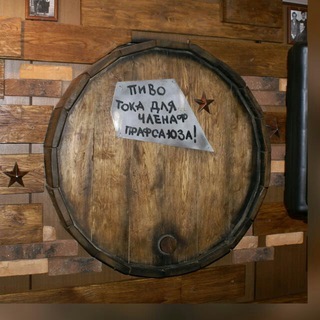 ПИВО
ТОКА ДЛЯ
ЧЛЕНАФ
ПРАФСАЮЗА!